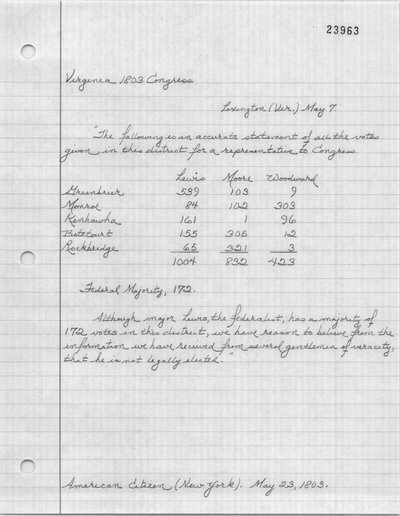 23963
Virginia 1803 Congress
Lexington (Vir.) May 7
"The following is an accurate statement of all the votes
given in this district for a representative to Congress.
Lewis Moore Woodward
Greenbrier 539 103 9
Monroe 84 102 303
Kenhawha 161 1 96
Botetourt 155 305 12
Rockbridge 65 321 3
1004 832 423
Federal Majority, 172.
Although major Lewis, the federalist, has a majority of
172 votes in this district, we have reason to believe from the
information we have received from several gentlemen of veracity,
that he is not legally elected."
American Citizen (New York). May 23, 1803.